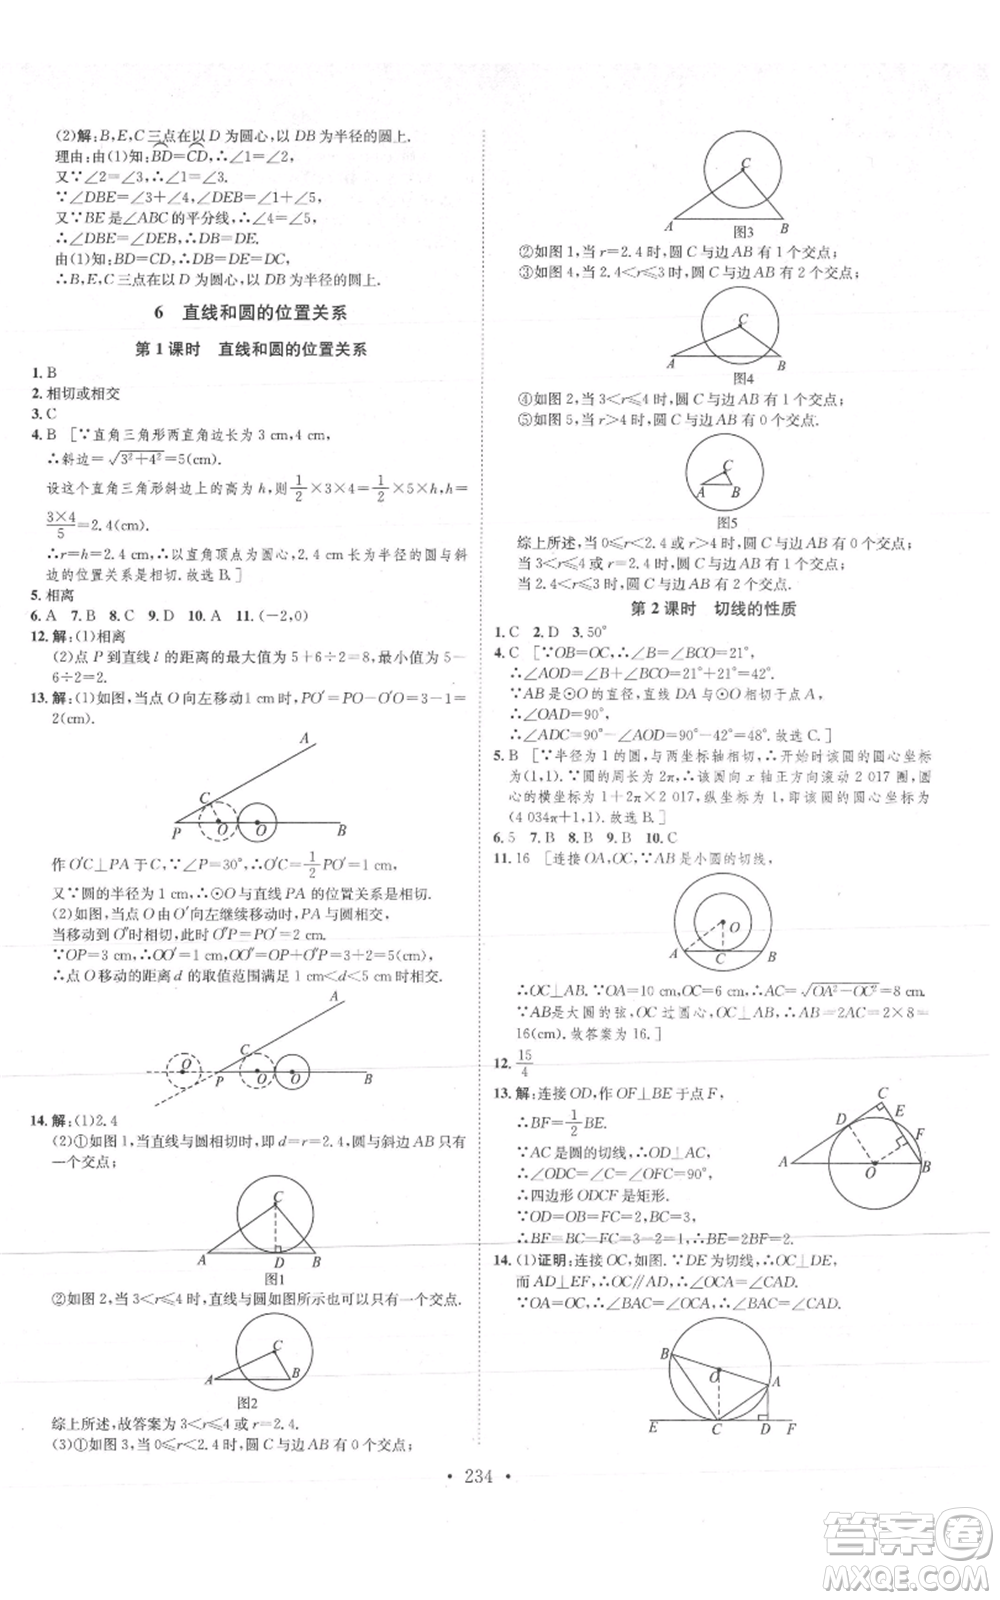 (2)解:B,E,C三点在以D为圆心,以DB为半径的圆上.
理由:由(1)知:BD=CD,∴∠1=∠2,
又∵∠2=∠3,∴∠1=∠3,
∵∠DBE=∠3+∠4,∠DEB=∠1+∠5,
又∵BE是∠ABC的平分线,∴∠4=∠5,
∴∠DBE=∠DEB,∴DB=DE.
由(1)知:BD=CD,∴DB=DE=DC.
∴B,E,C三点在以D为圆心,以DB为半径的圆上.
6 直线和圆的位置关系
第1课时 直线和圆的位置关系
1. B
2. 相切或相交
3. C
4. B [∵直角三角形两直角边长为3 cm,4 cm,
∴斜边=√(3²+4²)=5(cm).
设这个直角三角形斜边上的高为h,则1/2×3×4=1/2×5×h,∴h=
3×4/5=2.4(cm).
∴r=h=2.4 cm,∴以直角顶点为圆心,2.4 cm长为半径的圆与斜
边的位置关系是相切.故选B.]
5. 相离
6. A 7. B 8. C 9. D 10. A 11. (-2,0)
12. 解:(1)相离
(2)点P到直线l的距离的最大值为5+6÷2=8,最小值为5-
6÷2=2.
13. 解:(1)如图,当点O向左移动1 cm时,PO′=PO-O′O=3-1=
2(cm).
A
C
P O′ O B
作O′C⊥PA于C,∵∠P=30°,∴O′C=1/2PO′=1 cm,
又∵圆的半径为1 cm,∴⊙O与直线PA的位置关系是相切.
(2)如图,当点O由O′向左继续移动时,PA与圆相交,
当移动到O″时相切,此时O″P=PO′=2 cm.
∵OP=3 cm,∴OO′=1 cm,OO″=OP+O″P=3+2=5(cm).
∴点O移动的距离d的取值范围满足1 cm<d<5 cm时相交.
A
C
O″ P O′ O B
14. 解:(1)2.4
(2)①如图1,当直线与圆相切时,即d=r=2.4,圆C与斜边AB只有
一个交点;
C
A D B
图1
②如图2,当3<r≤4时,直线与圆如图所示也可以只有一个交点.
C
A B
图2
综上所述,故答案为3<r≤4或r=2.4.
(3)①如图3,当0<r<2.4时,圆C与边AB有0个交点;
C
A B
图3
②如图1,当r=2.4时,圆C与边AB有1个交点;
③如图4,当2.4<r≤3时,圆C与边AB有2个交点;
C
A B
图4
④如图2,当3<r≤4时,圆C与边AB有1个交点;
⑤如图5,当r>4时,圆C与边AB有0个交点.
C
A B
图5
综上所述,当0≤r<2.4或r>4时,圆C与边AB有0个交点;
当3<r≤4或r=2.4时,圆C与边AB有1个交点;
当2.4<r≤3时,圆C与边AB有2个交点.
第2课时 切线的性质
1. C 2. D 3. 50°
4. C [∵OB=OC,∴∠B=∠BCO=21°,
∴∠AOD=∠B+∠BCO=21°+21°=42°.
∵AB是⊙O的直径,直线DA与⊙O相切于点A,
∴∠OAD=90°,
∴∠ADC=90°-∠AOD=90°-42°=48°.故选C.]
5. B [∵半径为1的圆,与两坐标轴相切,∴开始时该圆的圆心坐标
为(1,1).∵圆的周长为2π,∴该圆向x轴正方向滚动2 017圈,圆
心的横坐标为1+2π×2 017,纵坐标为1,即该圆的圆心坐标为
(4 034π+1,1).故选B.]
6. 5 7. B 8. B 9. B 10. C
11. 16 [连接OA,OC,∵AB是小圆的切线,
O
A C B
∴OC⊥AB.∵OA=10 cm,OC=6 cm,∴AC=√(OA²-OC²)=8 cm.
∵AB是大圆的弦,OC过圆心,OC⊥AB,∴AB=2AC=2×8=
16(cm).故答案为16.]
12. 15/4
13. 解:连接OD,作OF⊥BE于点F,
∴BF=1/2BE.
∵AC是圆的切线,∴OD⊥AC,
∴∠ODC=∠C=∠OFC=90°,
∴四边形ODCF是矩形.
∵OD=OB=FC=2,BC=3,
∴BF=BC-FC=BC-OD=3-2=1,
∴BE=2BF=2.
C
D E
F
A O B
14. (1)证明:连接OC,如图.∵DE为切线,∴OC⊥DE,
而AD⊥EF,∴OC∥AD,∴∠OCA=∠CAD.
∵OA=OC,∴∠OCA=∠BAC,∴∠BAC=∠CAD.
B
O
A
E C D F
234
答案圈
MXQE.COM